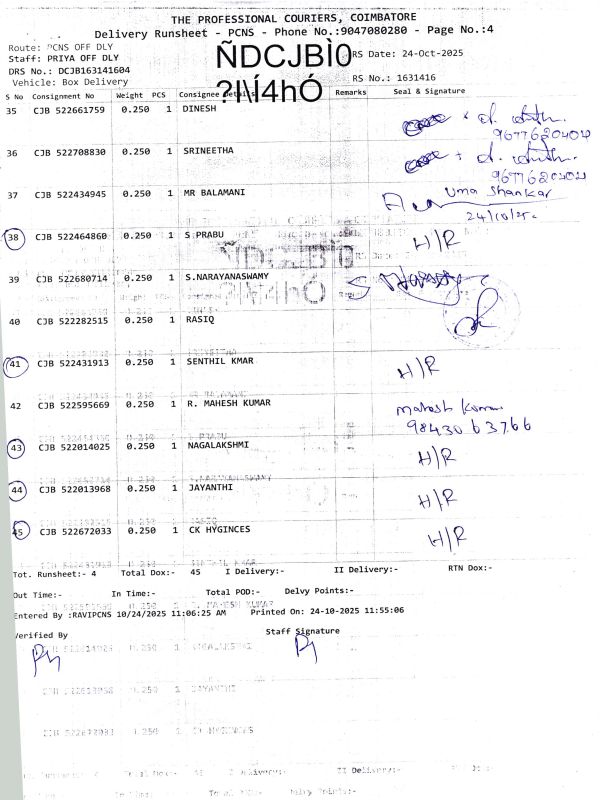 THE PROFESSIONAL COURIERS, COIMBATORE
Delivery Runsheet - PCNS - Phone No.:9047080280 - Page No.:4
Route: PCNS OFF DLY
Staff: PRIYA OFF DLY
ÑDCJBÌ0
RS Date: 24-Oct-2025
DRS No.: DCJB163141604
RS No.: 1631416
Vehicle: Box Delivery
S No Consignment No Weight PCS Consignee Details Remarks Seal & Signature
35 CJB 522661759 0.250 1 DINESH
9677620402
36 CJB 522708830 0.250 1 SRINEETHA
9677620402
37 CJB 522434945 0.250 1 MR BALAMANI Uma Shankar
24/10/25.
38 CJB 522464860 0.250 1 S PRABU H/R
39 CJB 522680714 0.250 1 S.NARAYANASWAMY
40 CJB 522282515 0.250 1 RASIQ
41 CJB 522431913 0.250 1 SENTHIL KMAR H/R
42 CJB 522595669 0.250 1 R. MAHESH KUMAR Mahesh Kumar
98430 63766
43 CJB 522014025 0.250 1 NAGALAKSHMI H/R
44 CJB 522013968 0.250 1 JAYANTHI H/R
45 CJB 522672033 0.250 1 CK HYGINCES H/R
Tot. Runsheet:- 4 Total Dox:- 45 I Delivery:- II Delivery:- RTN Dox:-
Out Time:- In Time:- Total POD:- Delvy Points:-
Entered By :RAVIPCNS 10/24/2025 11:06:25 AM Printed On: 24-10-2025 11:55:06
Verified By Staff Signature